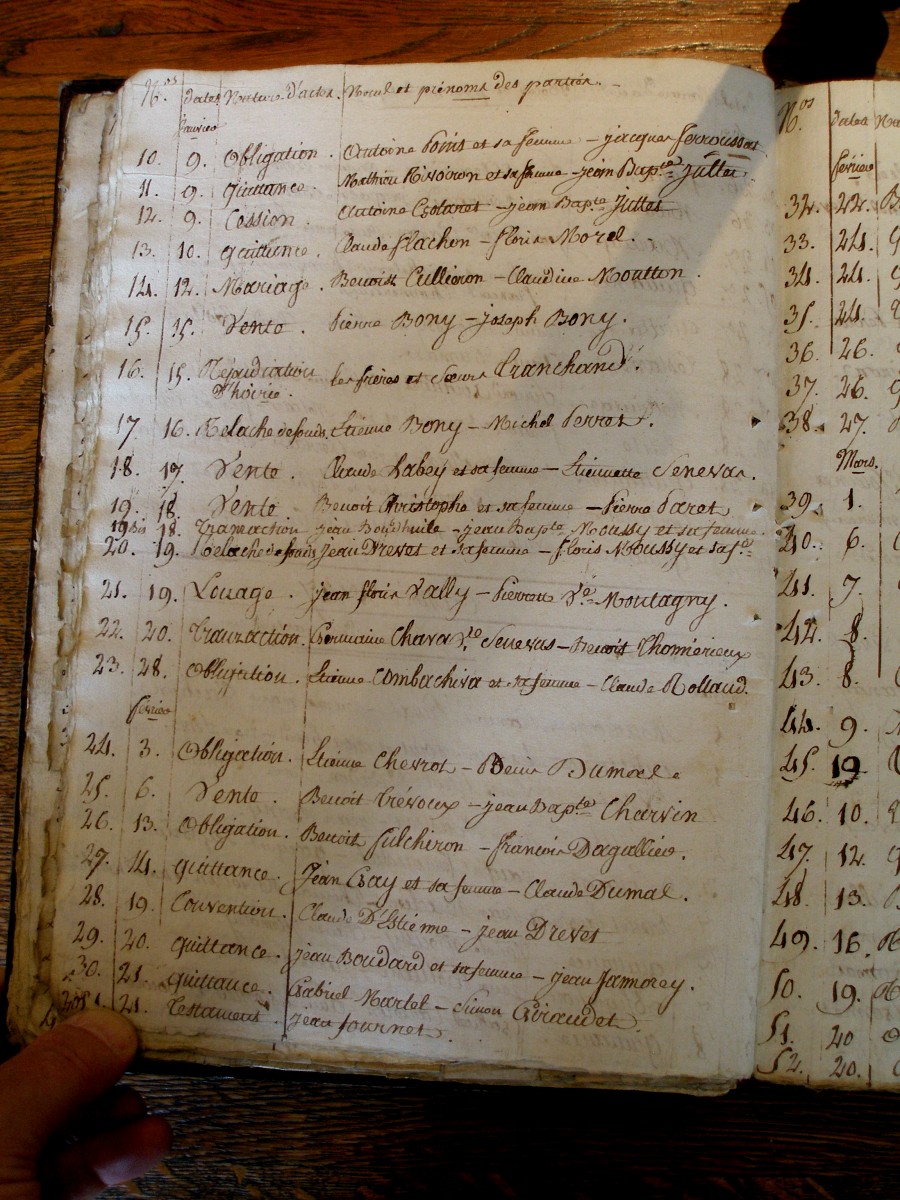 N.os dates Nature d'actes. Noms et prénoms des parties.
Janvier
10. 9. Obligation. Antoine et sa femme – jacques
11. 9. quittance. Mathieu et sa femme – jean Bapte Juttet
12. 9. Cession. Antoine – jean Bapte Juttet
13. 10. quittance. Claude flachon – floris Morel.
14. 12. Mariage. Benoist Cullieron – Claudine Moutton.
15. 15. Vente. Pierre Bony – joseph Bony.
16. 15. Répudiation les frères et sœurs Tranchand.
D'hoirie.
17 16. Relache de fonds. Etienne Bony – Michel Perret.
18. 17. Vente. Claude Labey et sa femme – Etiennette Senevas.
19. 18. Vente Benoit Christophe et sa femme – Pierre Paret
19 bis 18. Transaction jean – jean Bapte Moussy et sa femme.
20. 19. Relache de fonds jean Drevet et sa femme – floris Moussy et sa fe
21. 19. Louage. jean floris Vally – Pierrette Ve Montagny.
22. 20. Transaction. Germaine Chava Ve Senevas – Benoit Thomérieux
23. 28. Obligation. Etienne Combachiva et sa femme – Claude Rolland.
février
24. 3. Obligation. Etienne Chevrot – Denis
25. 6. Vente. Benoit Trévoux – jean Bapte Charvin
26. 13. Obligation. Benoit fulchiron – françois Dagallier.
27. 14. quittance. Jean et sa femme – Claude Dumas.
28. 19. Convention. Claude D'Estienne – jean Drevet
29. 20. quittance. jean Boudard et sa femme – jean
30. 21. quittance. Gabriel Martel – Simon Giraudet.
21. Testament. jean fournet.
N.os dates
février
32. 22.
33. 24.
34. 24.
35. 24.
36. 26.
37. 26.
38. 27.
Mars.
39. 1.
40. 6.
41. 7.
42. 8.
43. 8.
44. 9.
45. 19
46. 10.
47. 12.
48. 13.
49. 16.
50. 19.
51. 20
52. 20.